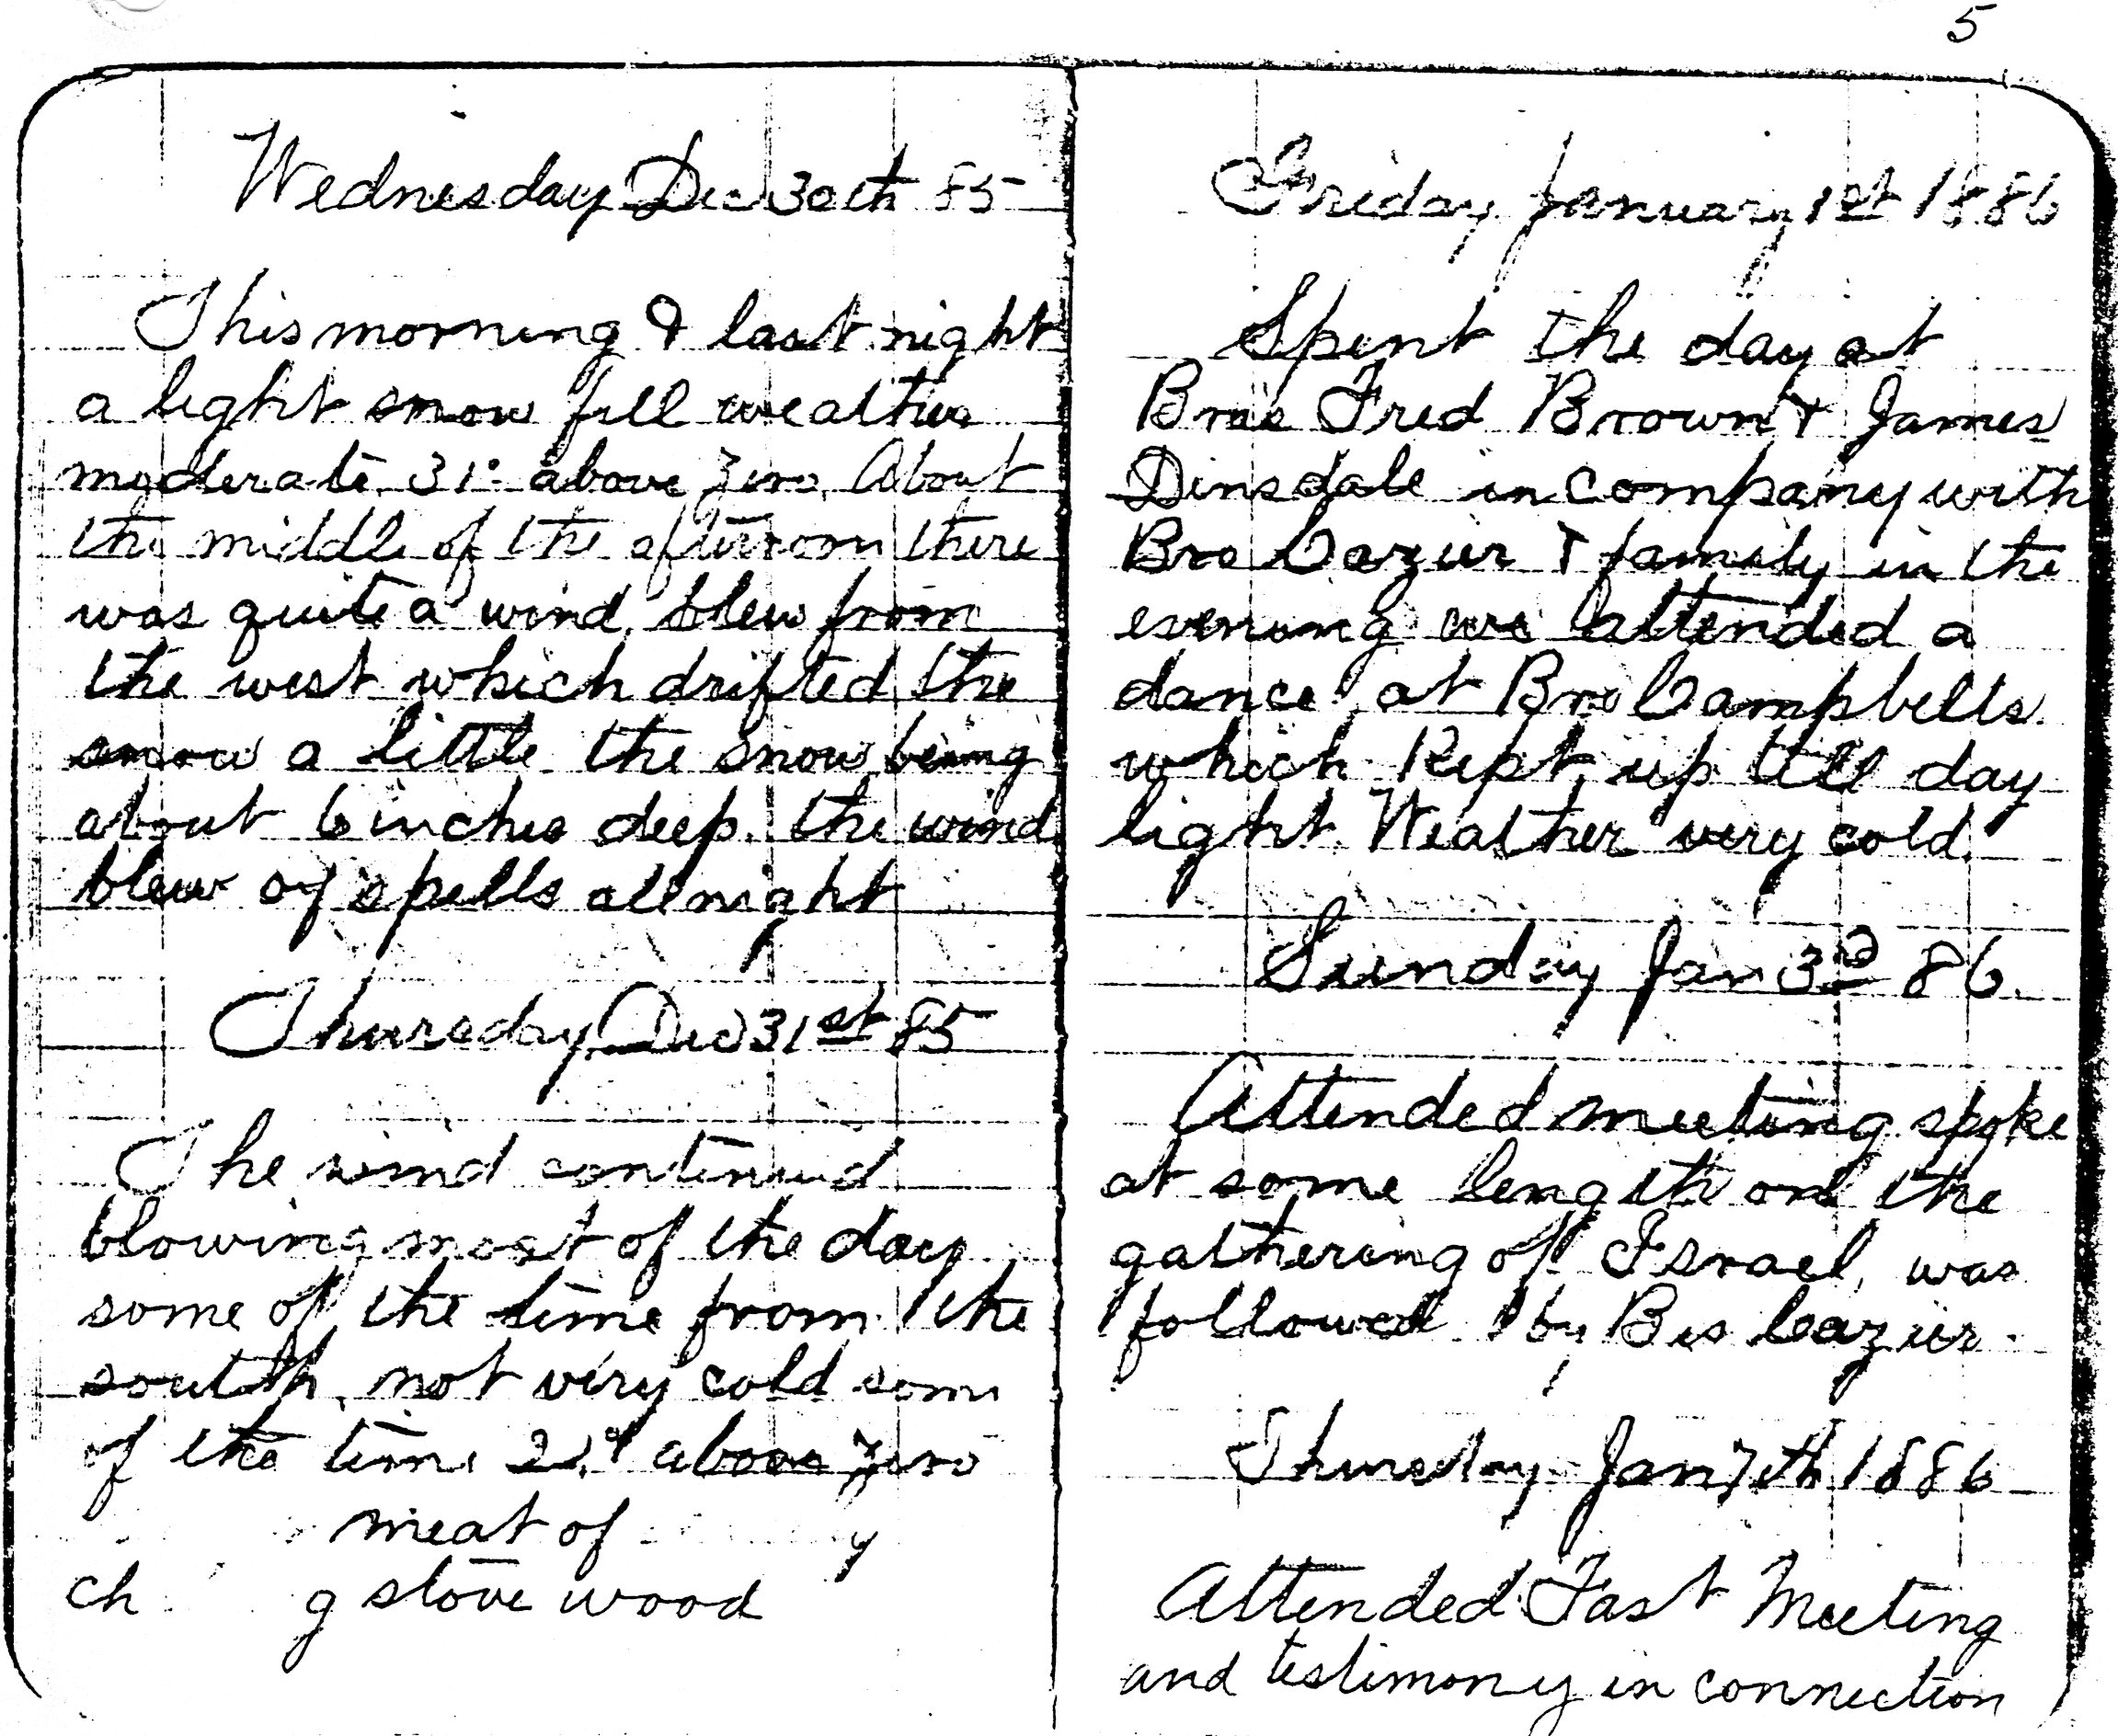 5
Wednesday Dec 30th 85
This morning & last night
a light snow fell weather
moderate 31° above zero. About
the middle of the afternoon there
was quite a wind, blew from
the west which drifted the
snow a little the snow being
about 6 inches deep. the wind
blew by spells all night
Thursday Dec 31st 85
The wind continued
blowing most of the day
some of the time from the
south, not very cold some
of the time above zero
meat of
ch g stove wood
Friday January 1st 1886
Spent the day at
Bro's Fred Brown & James
Dinsdale in company with
Bro Cazier & family in the
evening we attended a
dance at Bro Campbells.
which kept up till day
light. Weather very cold.
Sunday Jan 3rd 86.
Attended meeting spoke
at some length on the
gathering of Israel, was
followed by Bis Cazier.
Thursday Jan 7th 1886
Attended Fast Meeting
and testimony in connection